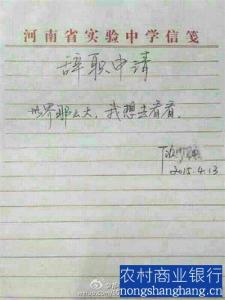 河南省实验中学信笺
辞职申请
世界那么大，我想去看看。
2015.4.13
农村商业银行
nongshanghang.cn